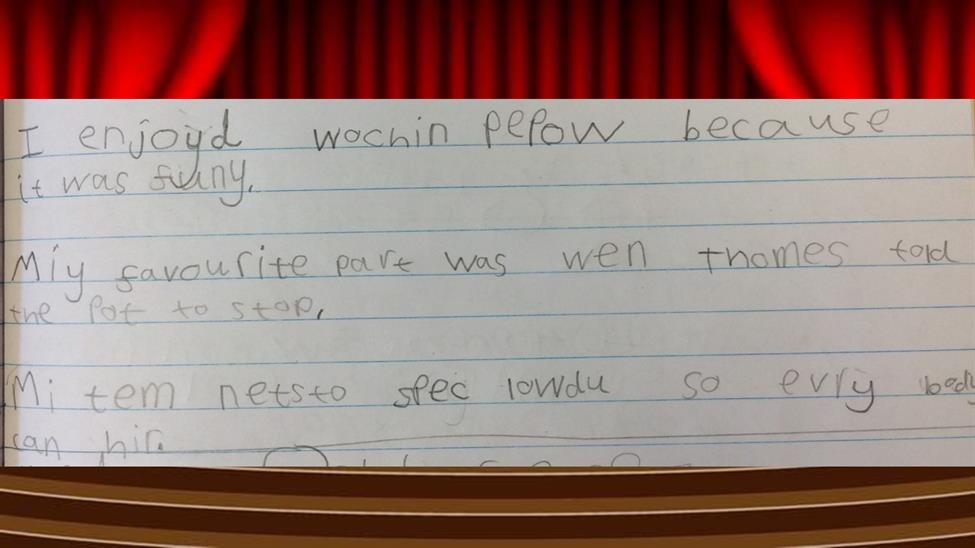 I enjoyd wochin pepow because
it was funny.
Miy favourite part was wen thomes told
the pot to stop.
Mi tem netsto spec lowdu so evry body
can hir.